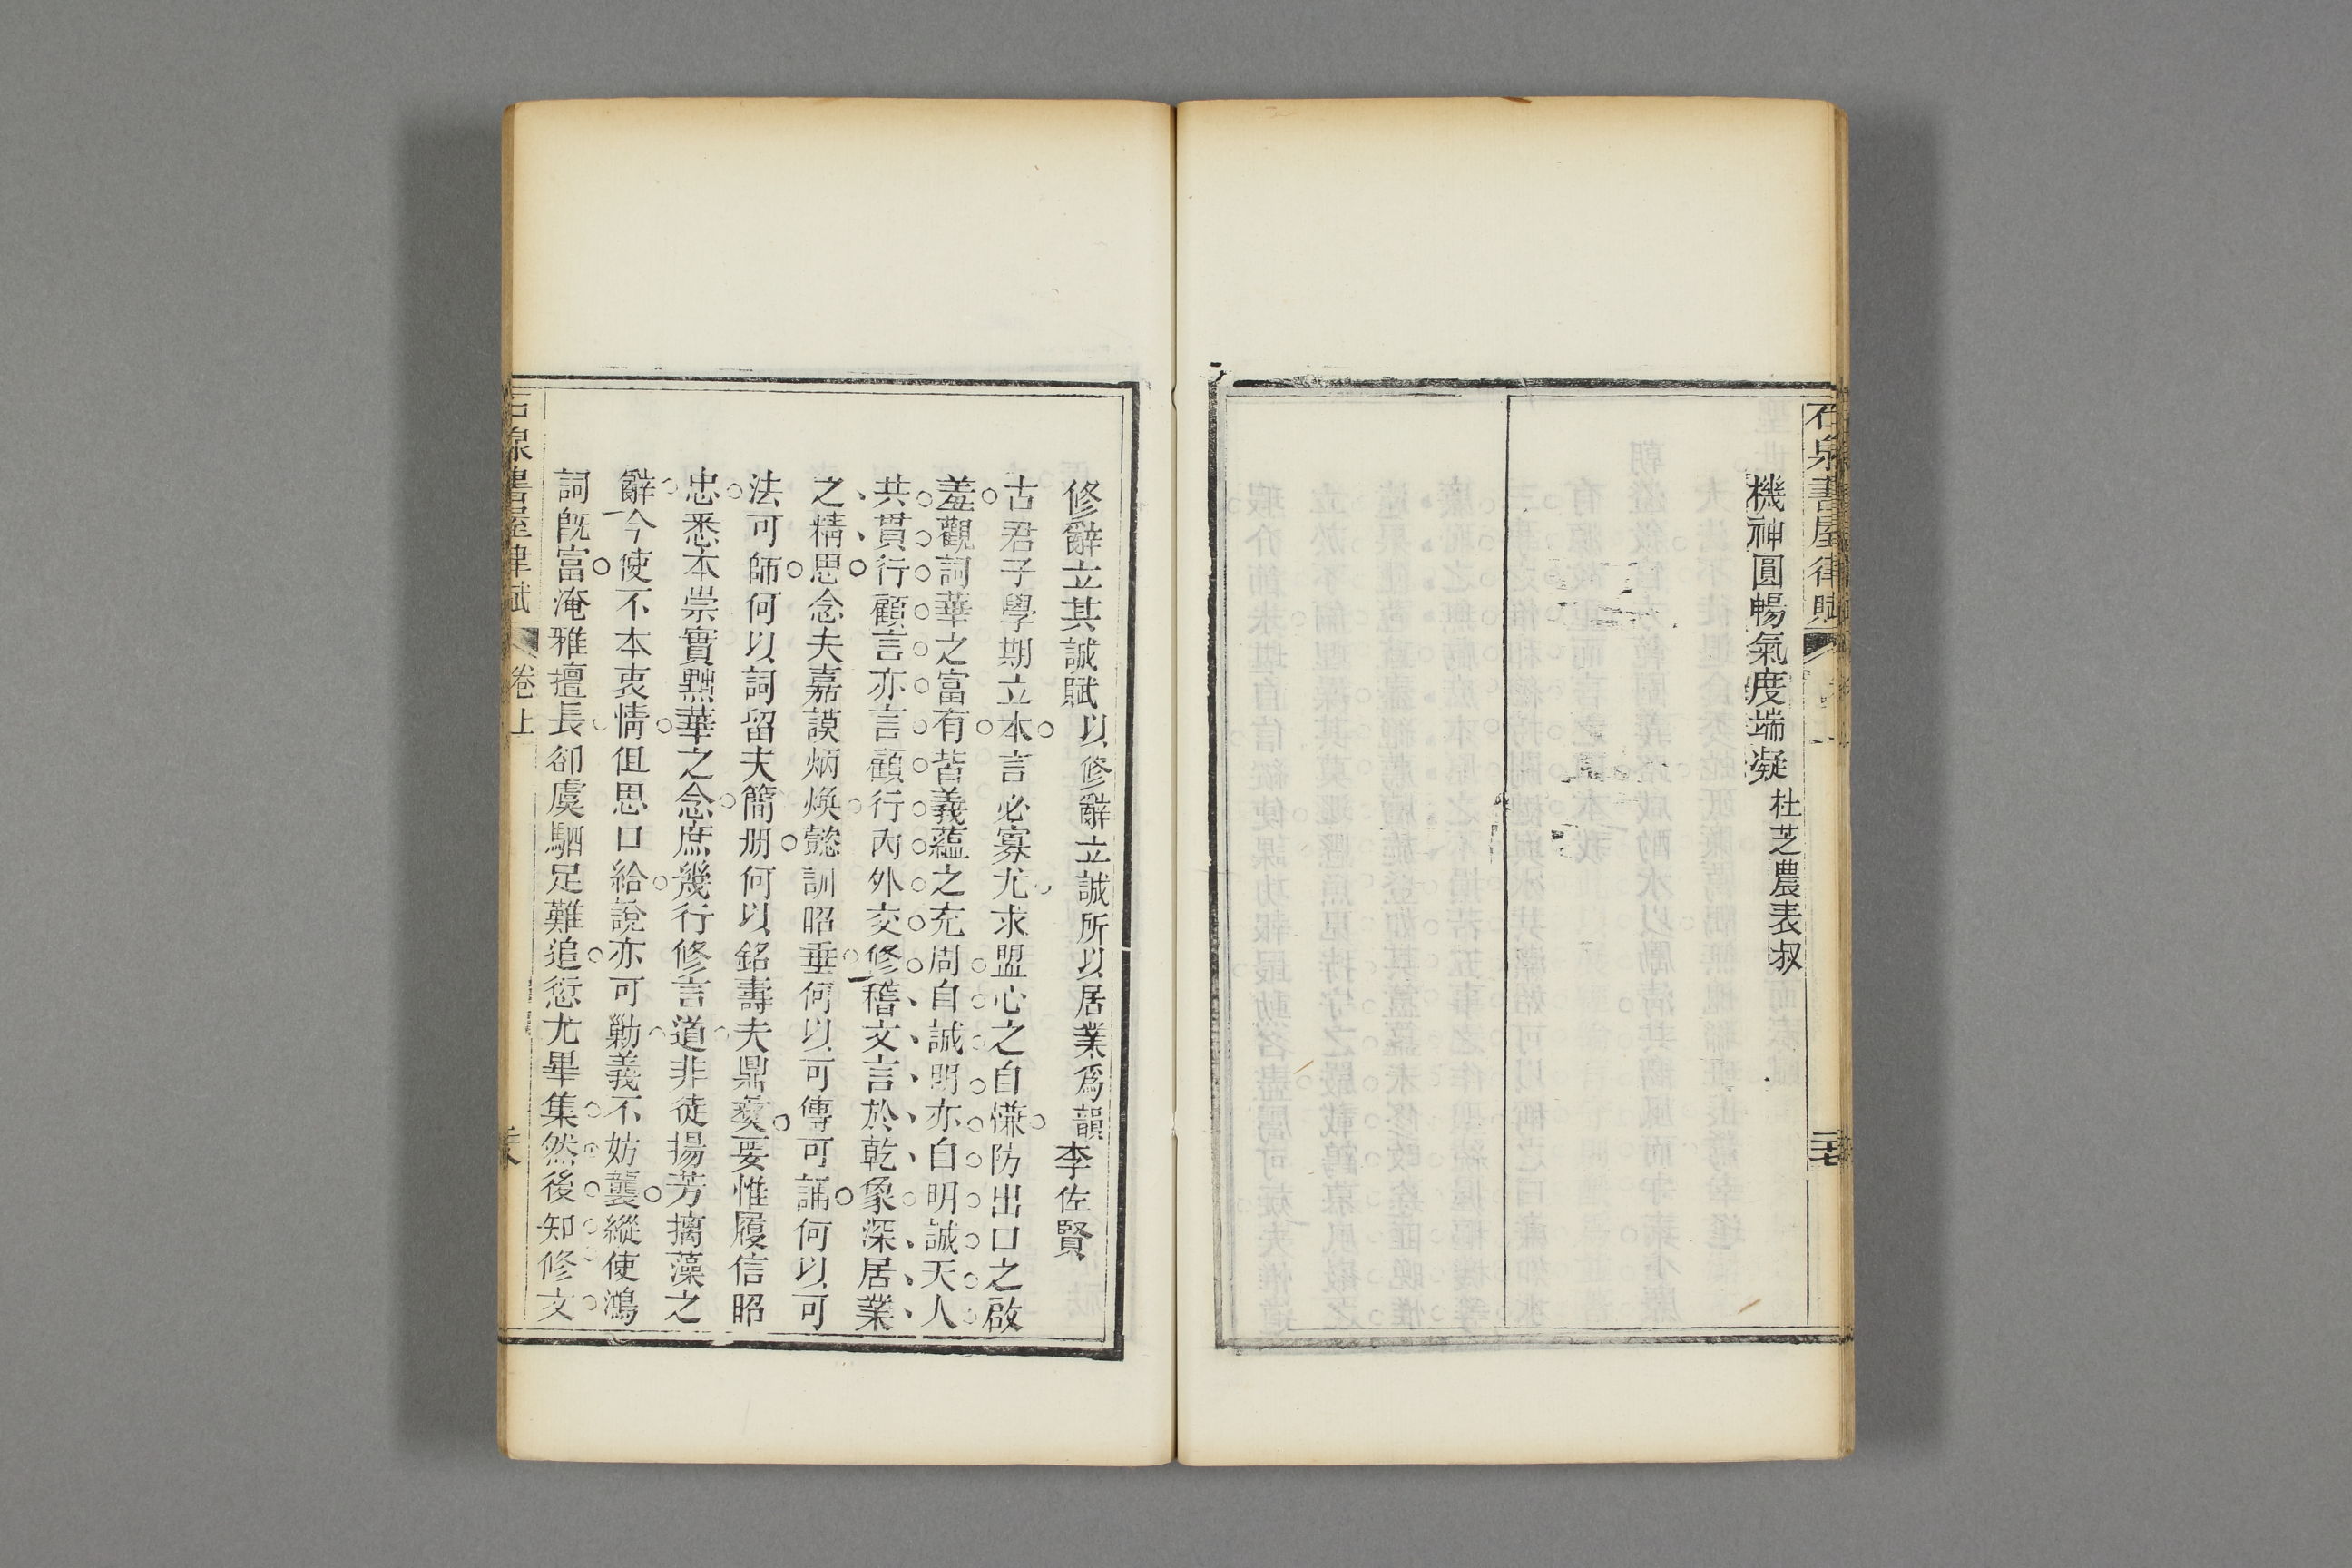 石泉書屋律賦
二十七
機神圓暢氣度端凝 杜芝農表叔
修辭立其誠賦 以修辭立誠所以居業爲韻 李佐賢
古君子學期立本言必寡尤求盟心之自慊防出口之啟
羞觀詞華之富有皆義蘊之充周自誠明亦自明誠天人
共貫行顧言亦言顧行內外交修稽文言於乾象深居業
之精思念夫嘉謨炳煥懿訓昭垂何以可傳可誦何以可
法可師何以詞留夫簡册何以銘壽夫鼎彝要惟履信昭
忠悉本崇實黜華之念庶幾行修言道非徒揚芳摛藻之
辭今使不本衷情但思口給說亦可勦義不妨襲縱使鴻
詞既富淹雅擅長卻虞駟足難追愆尤畢集然後知修文
石泉書屋律賦 卷上